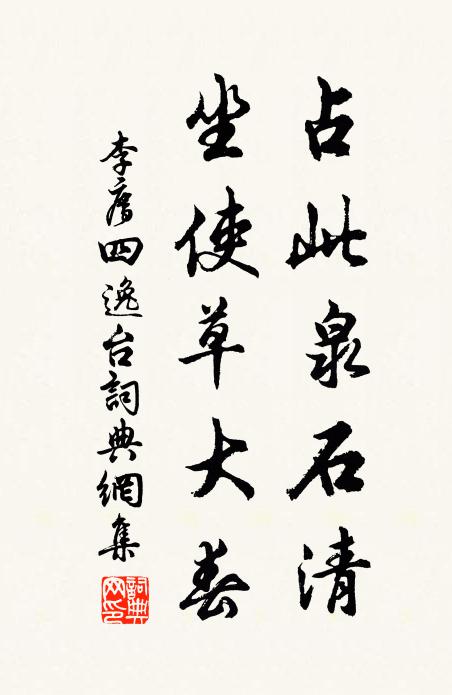 占此泉石清
坐使草大春
李廌四逸台詞典網集
詞典
网印